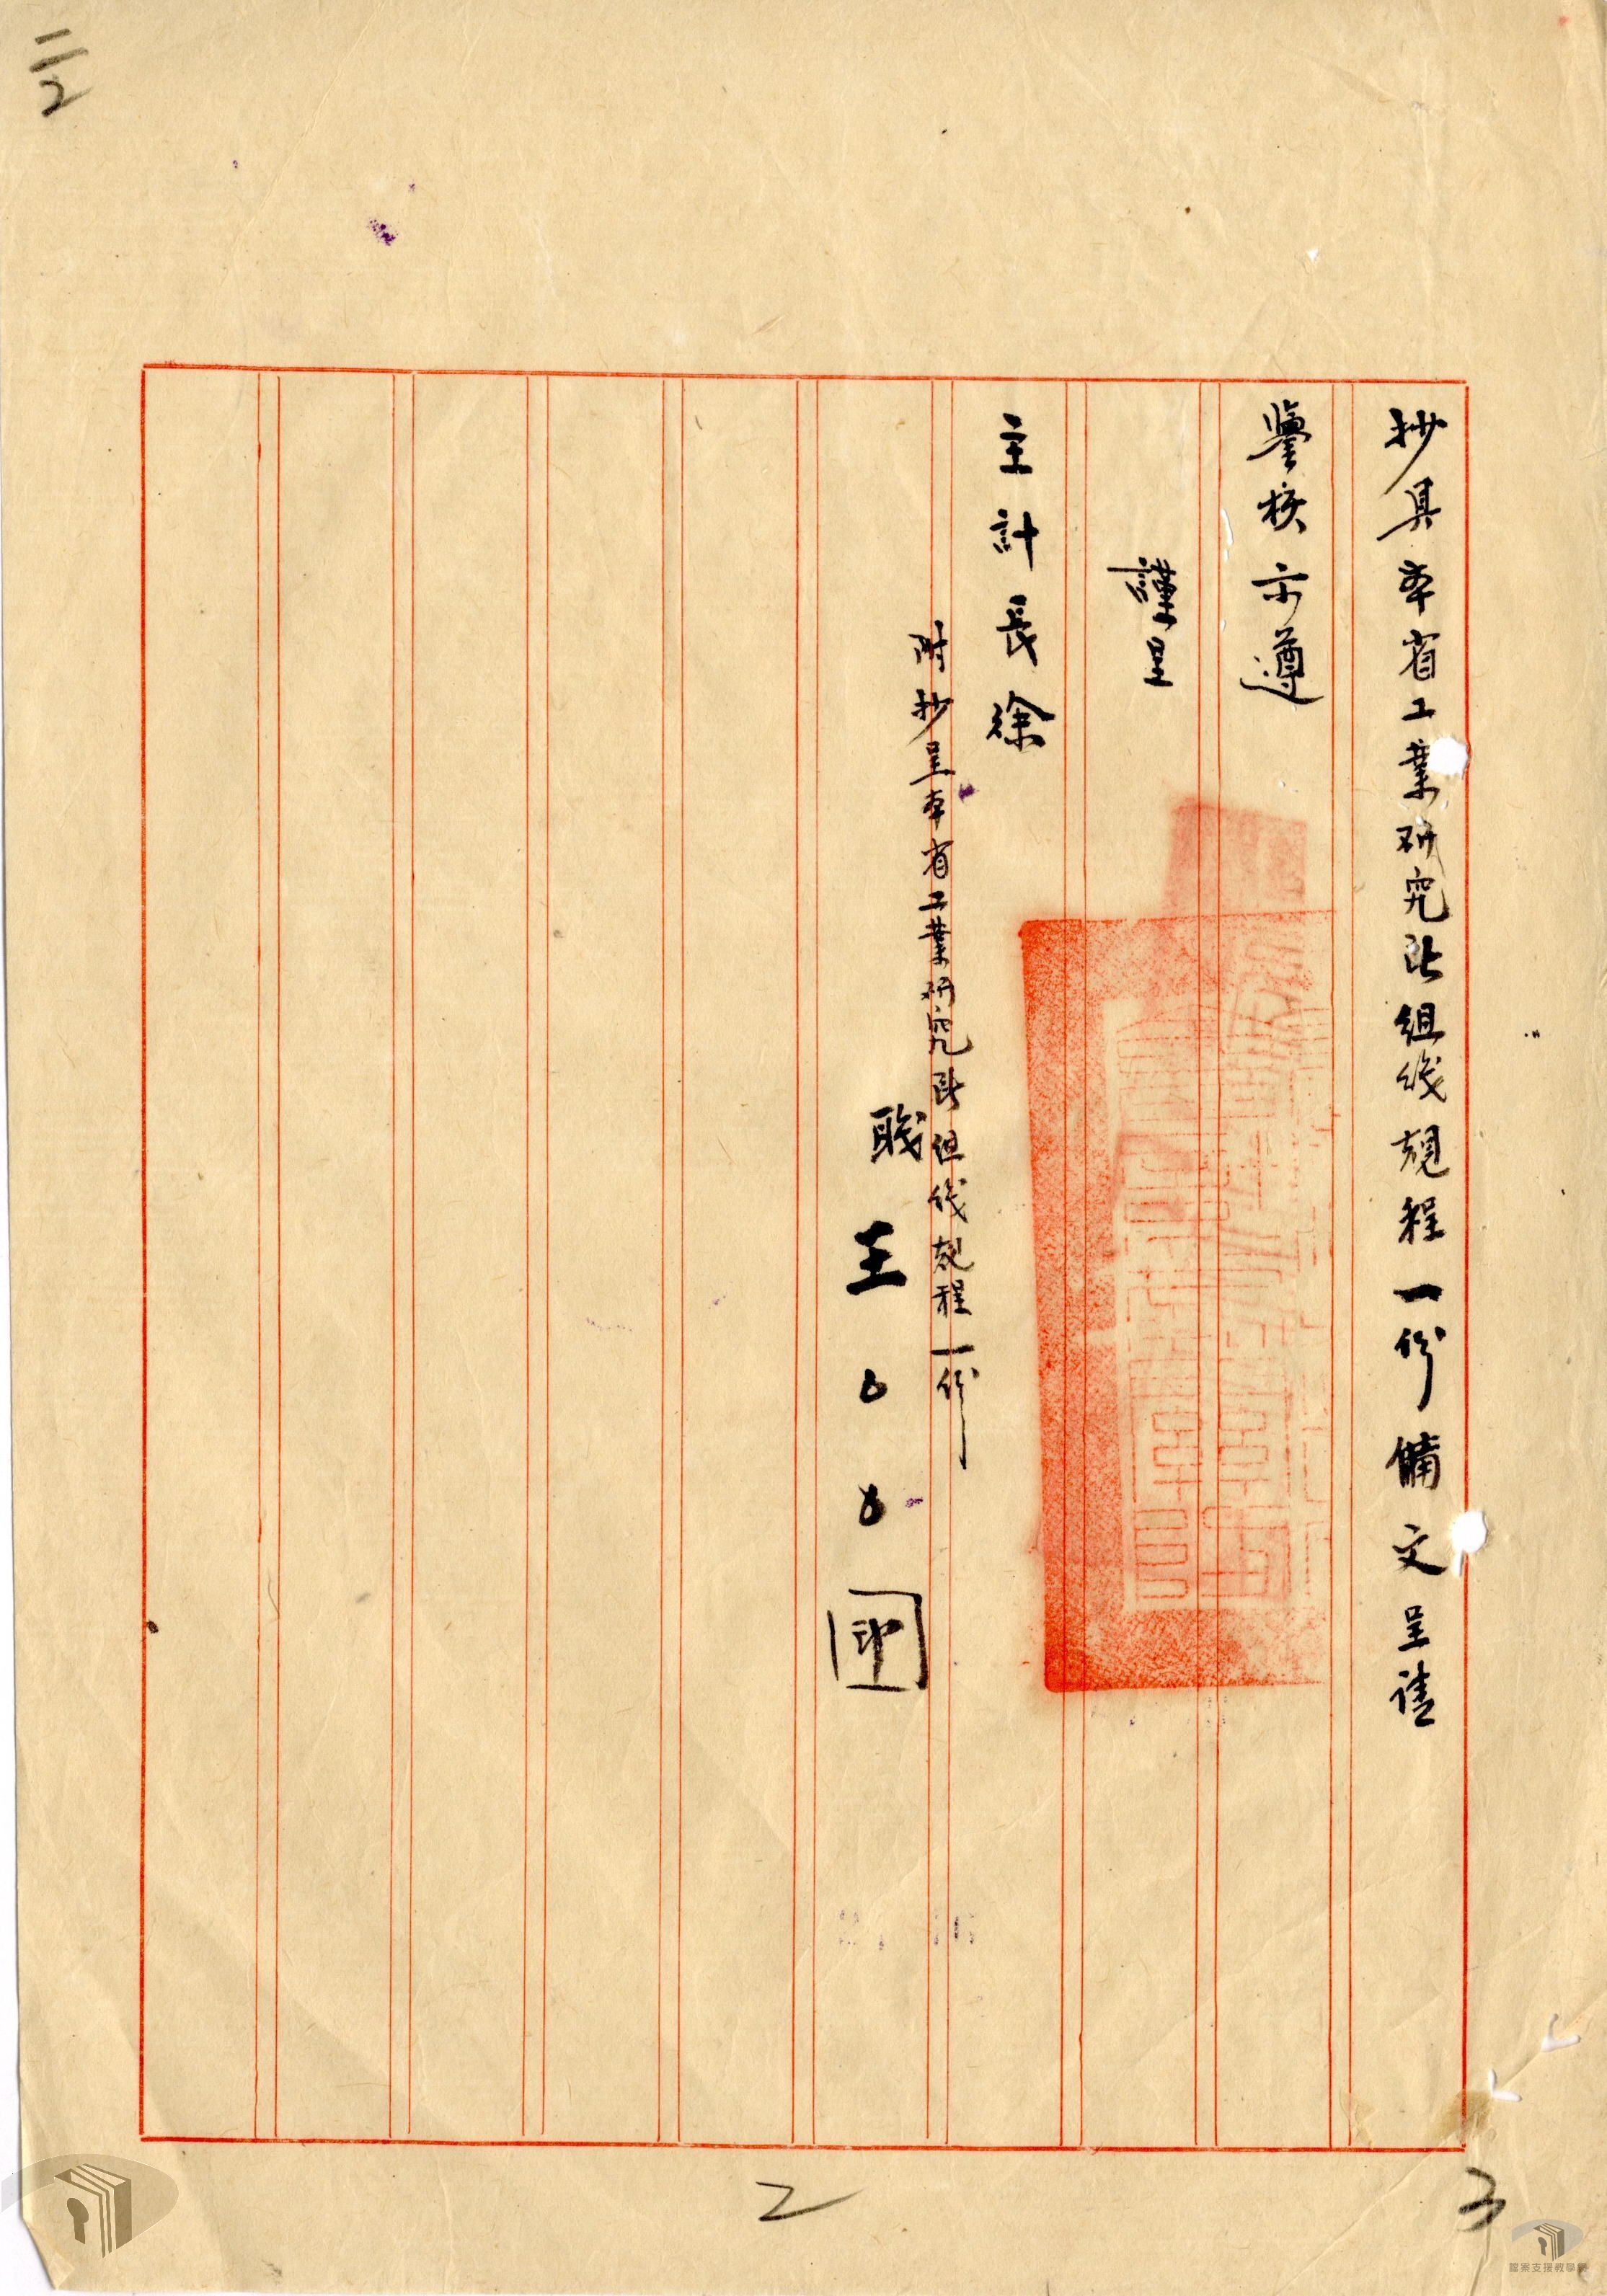 抄具本省工業研究所組織規程一份備文呈請
鑒核示遵
謹呈
主計長徐
附抄呈本省工業研究所組織規程一份
職王
印
二
2
2
3
檔案支援教學網